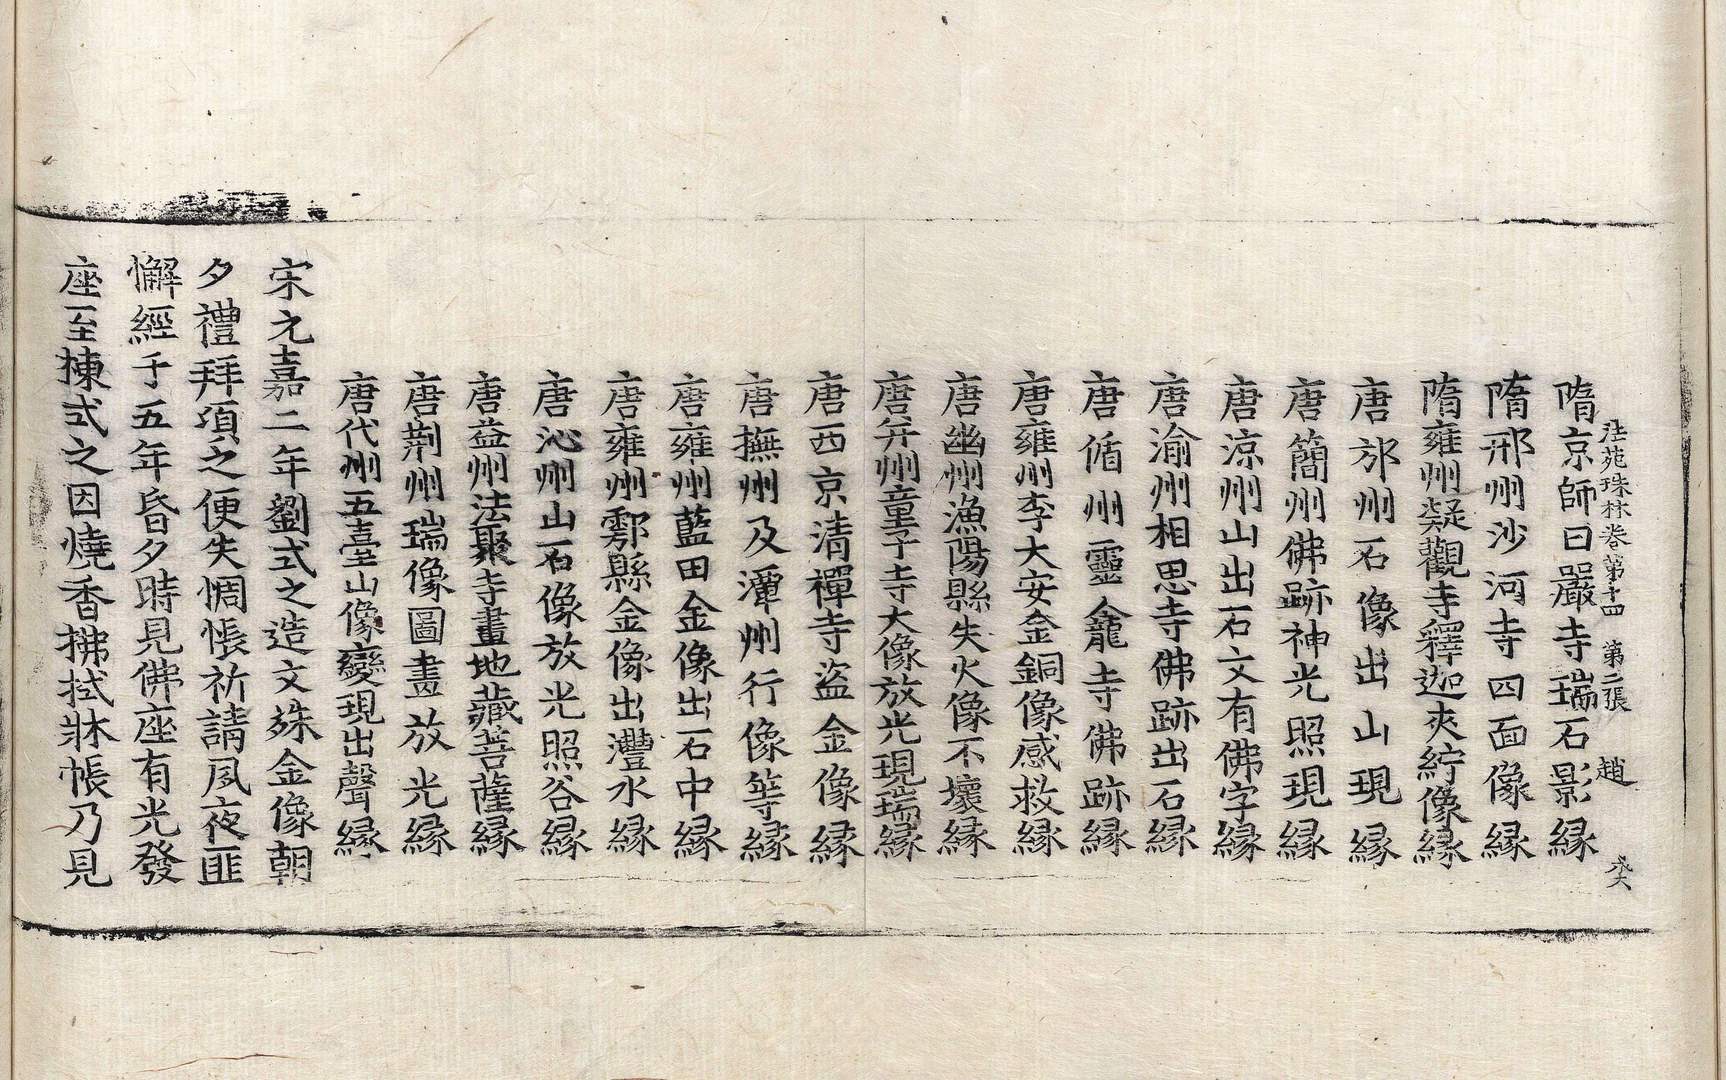 法苑珠林卷第十四　第二張　趙
隋京師日嚴寺瑞石影縁
隋邢州沙河寺四面像縁
隋雍州凝觀寺釋迦夾紵像縁
唐邡州石像出山現縁
唐簡州佛跡神光照現縁
唐涼州山出石文有佛字縁
唐渝州相思寺佛跡出石縁
唐循州靈龕寺佛跡縁
唐雍州李大安金銅像感救縁
唐幽州漁陽縣失火像不壞縁
唐并州童子寺大像放光現瑞縁
唐西京清禪寺盜金像縁
唐撫州及潭州行像等縁
唐雍州藍田金像出石中縁
唐雍州鄠縣金像出灃水縁
唐沁州山石像放光照谷縁
唐益州法聚寺畫地藏菩薩縁
唐荆州瑞像圖畫放光縁
唐代州五臺山像變現出聲縁
宋元嘉二年劉式之造文殊金像朝
夕禮拜頃之便失惆悵祈請夙夜匪
懈經于五年昏夕時見佛座有光發
座至揀式之因燒香拂拭牀帳乃見